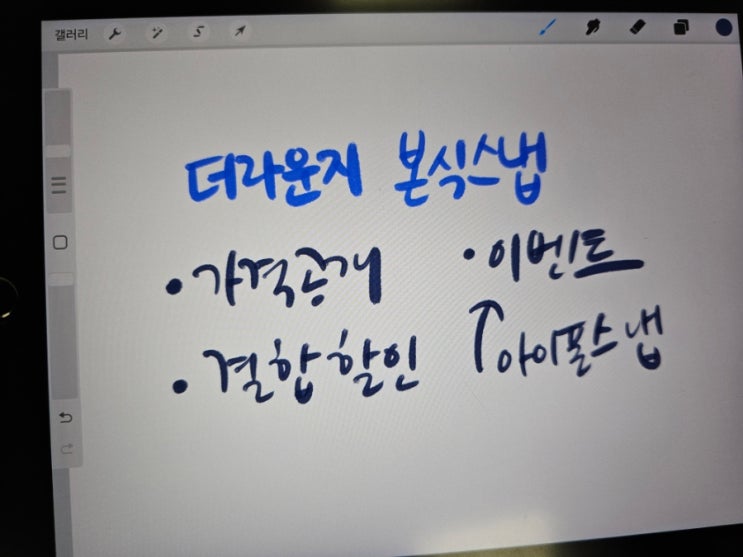 갤러리
더라운지 본식스냅
• 가격공개
• 이벤트
• 결합할인
↑ 아이폰스냅